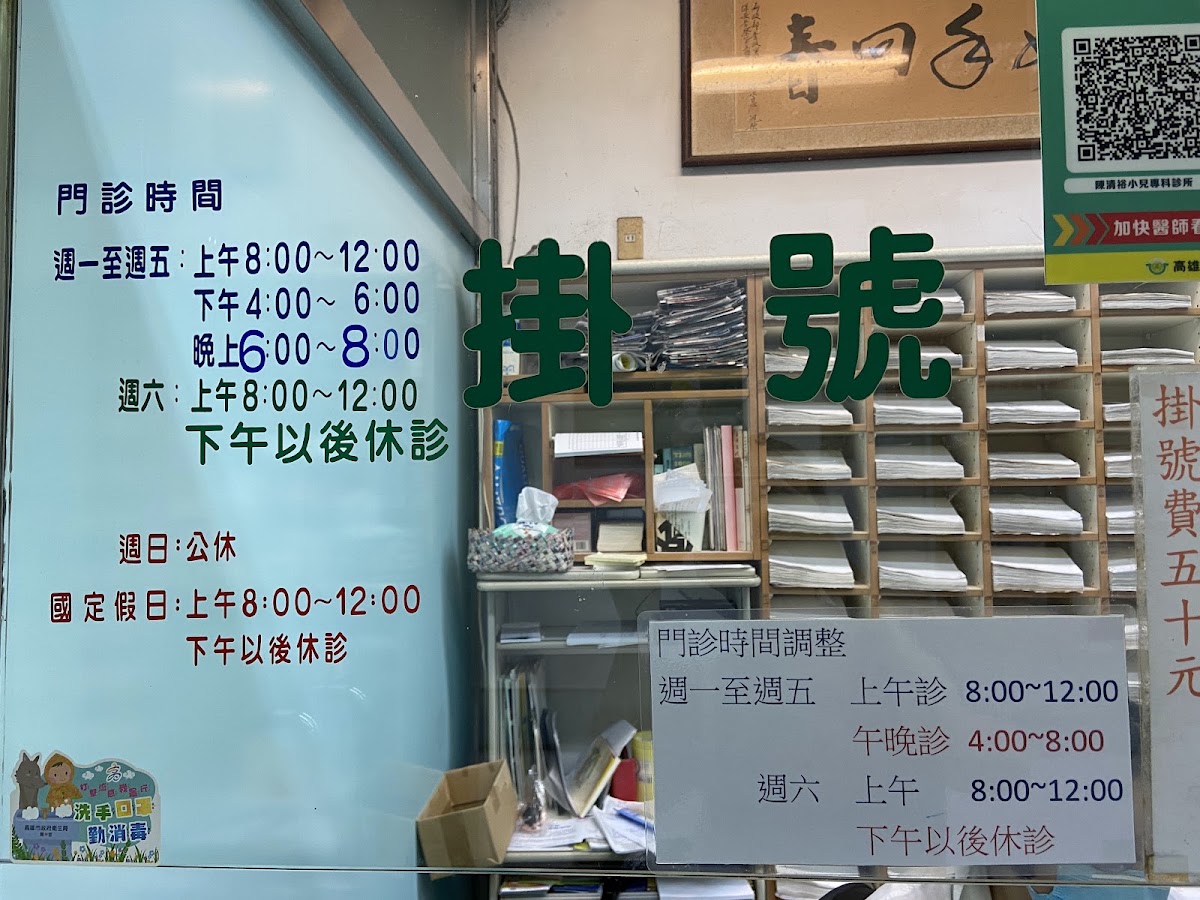 門診時間
週一至週五：上午8:00～12:00
下午4:00～ 6:00
晚上6:00～8:00
週六：上午8:00～12:00
下午以後休診
週日：公休
國定假日：上午8:00～12:00
下午以後休診
洗手口罩
勤消毒
掛號
手回春
陳清裕小兒專科診所
加快醫師看
高雄
掛號費五十元
門診時間調整
週一至週五 上午診 8:00~12:00
午晚診 4:00~8:00
週六 上午 8:00~12:00
下午以後休診